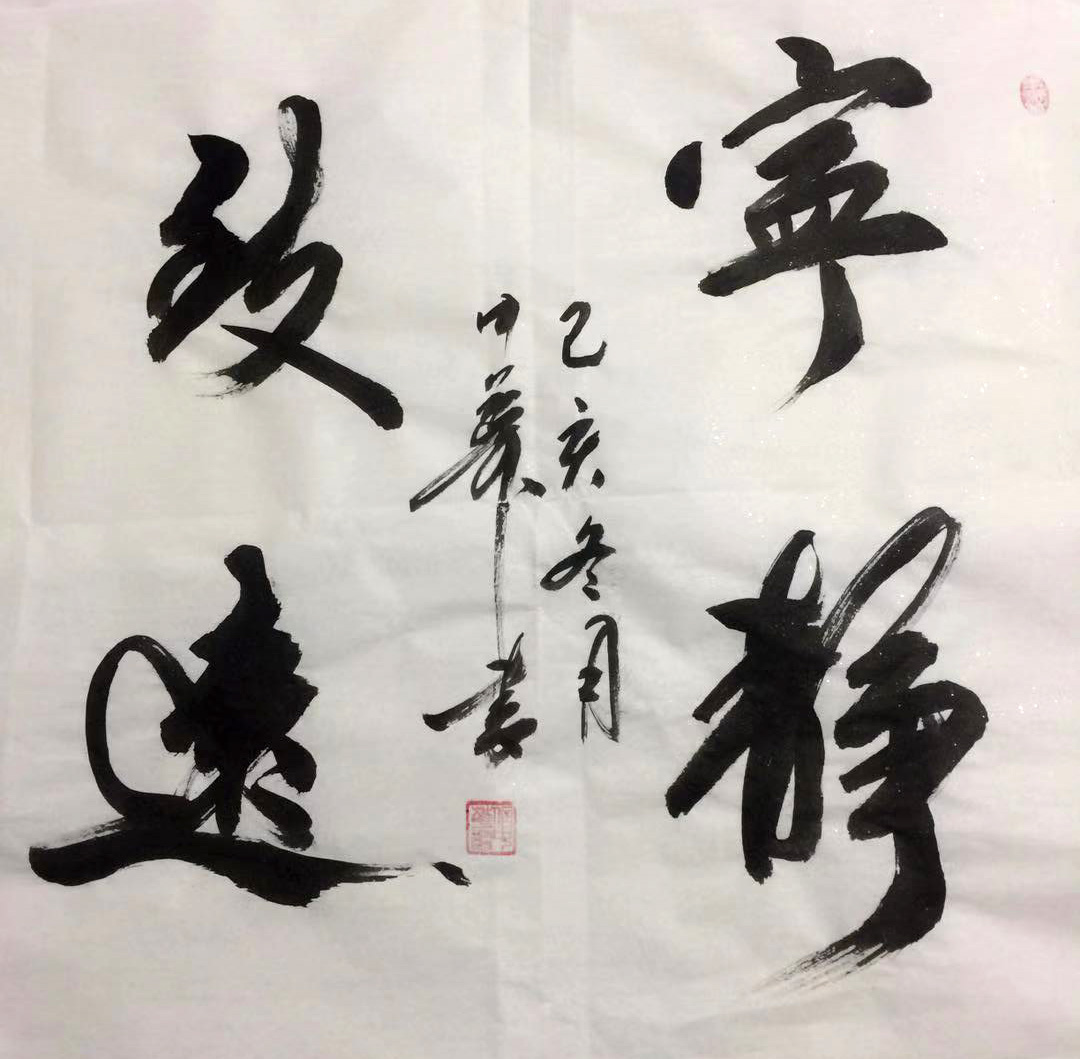 寧靜
致遠
己亥冬月
中華書